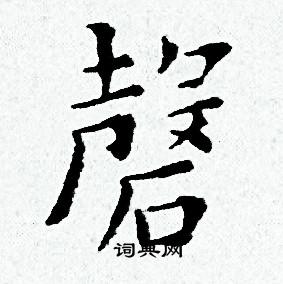 磬
词典网